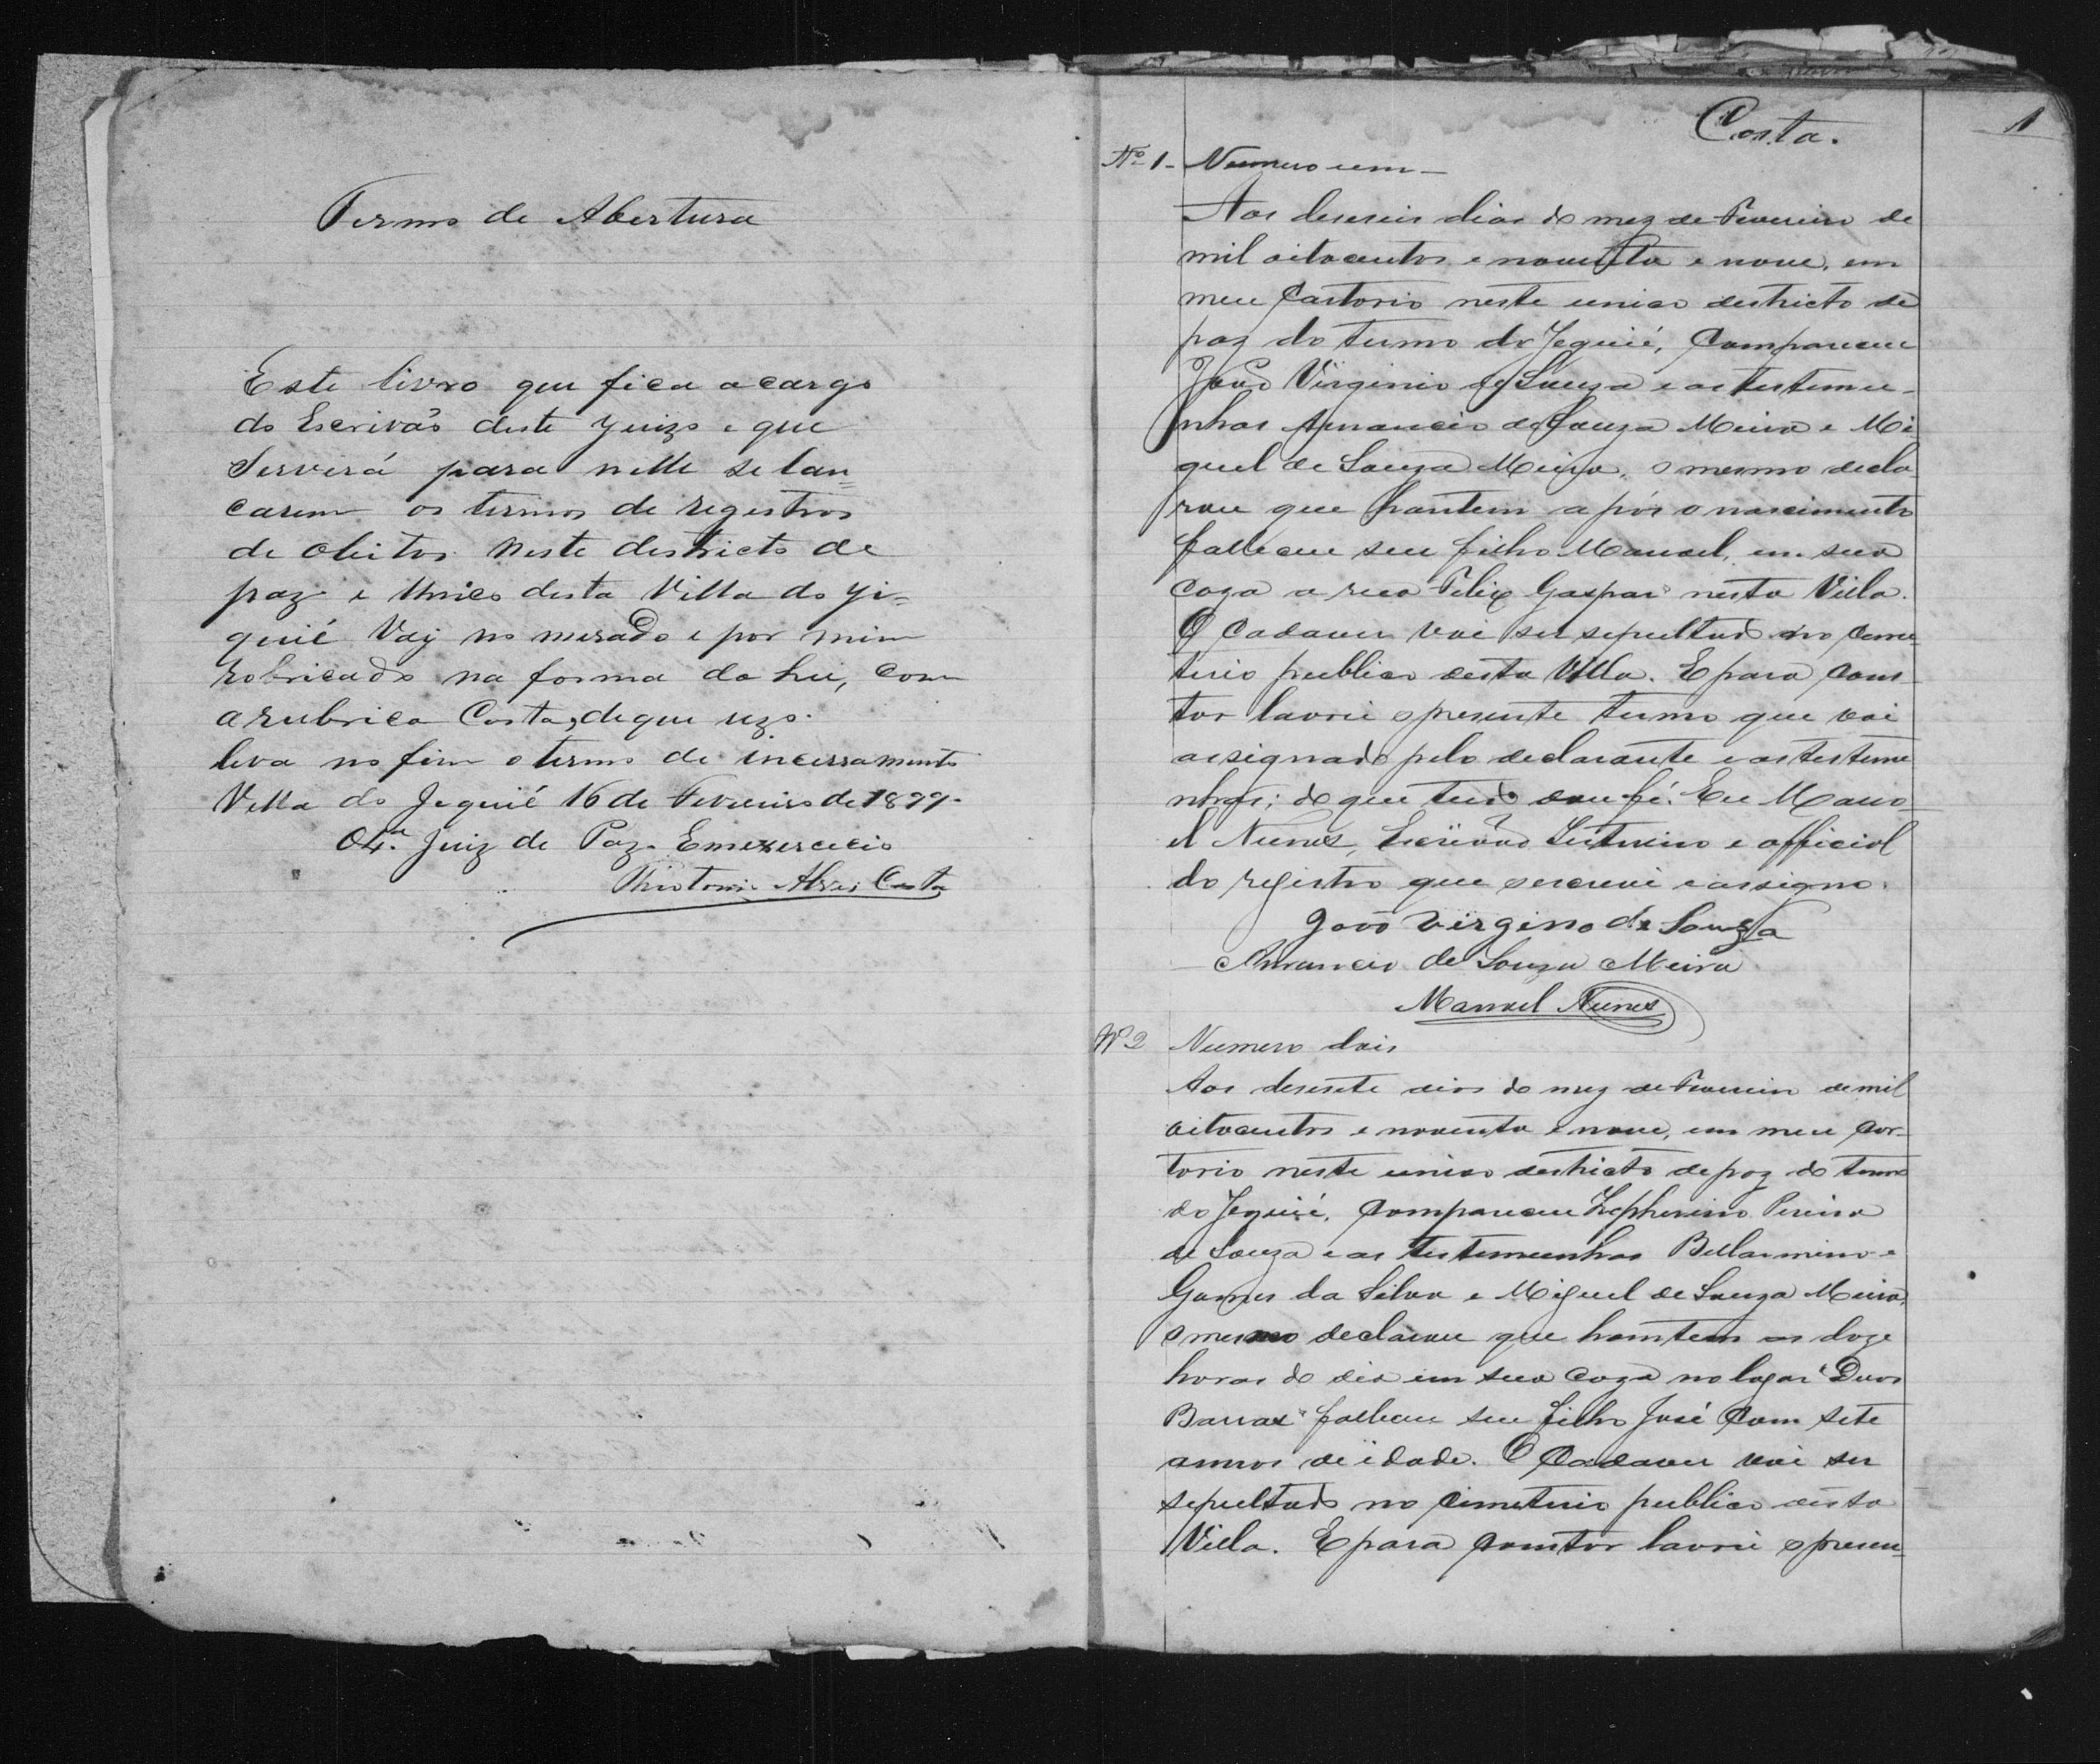 Termo de Abertura
Este livro que fica a cargo
do Escrivaõ deste Juizo e que
Servirá para nelle se lan=
carem os termos de registros
de obitos neste districto de
paz e Unico desta Villa do Ji=
quié Vay no merado e por mim
robricado na forma da Lei, com
a rubrica Costa, de que uzo.
leva no fim o termo de incerramento
Villa do Jequié 16 de Fevereiro de 1899.
O 4.º Juiz de Paz. Em exercicio
Alves Costa
Costa.
1
Nº 1 - Numero um -
Aos deseseis dias do mez de Fevereiro de
mil oitocentos e noventa e nove, em
meu Cartorio neste unico destricto de
paz do termo do Jequié, Compareceu
João Virginio de Souza e as testemu-
nhas Amancio de Souza Meira e Mi
guel de Souza Meira, o mesmo decla
rou que hontem a pós o nascimento
falleceu seu filho Manoel, em sua
caza a rua Felix Gaspar nesta Villa.
O Cadaver vai ser sepultado no Cemi
terio publico desta Villa. E para cons
tar lavrei o presente termo que vai
assignado pelo declarante e as testemu
nhas; do que tudo dou fé. Eu Mano
el Nunes, Escrivão Interino e official
do registro que escrevi e assigno.
João Virgino de Souza
Amancio de Souza Meira
Manoel Nunes
Nº 2 Numero dois
Aos desesete dias do mez de Fevereiro de mil
oitocentos e noventa e nove, em meu Car-
torio neste unico destricto de paz do termo
do Jequié, Compareceu Zepherino Pereira
de Souza e as testemunhas Bellarmino
Gomes da Silva e Miguel de Souza Meira,
o mesmo declarou que hontem as doze
horas do dia em sua caza no logar "Duas
Barras" falleceu seu filho José com sete
annos de idade. O Cadaver vai ser
sepultado no cimiterio publico desta
Villa. E para constar lavrei o presen-